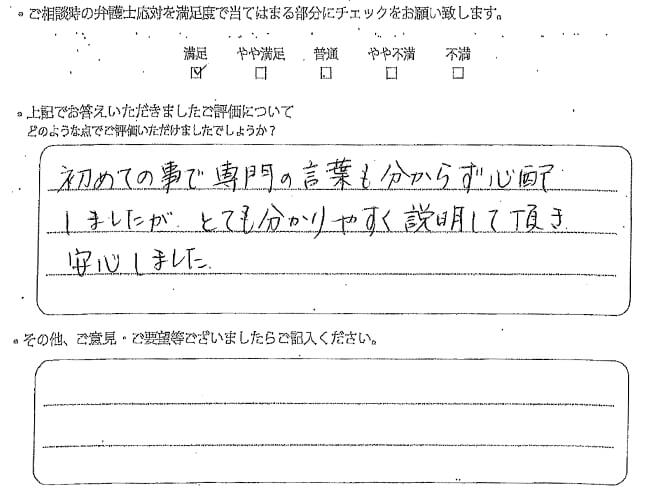 ・ご相談時の弁護士応対を満足度で当てはまる部分にチェックをお願い致します。
満足 やや満足 普通 やや不満 不満
☑ □ □ □ □
・上記でお答えいただきましたご評価について
どのような点でご評価いただけましたでしょうか？
初めての事で専門の言葉も分からず心配
しましたが、とても分かりやすく説明して頂き
安心しました。
・その他、ご意見・ご要望等ございましたらご記入ください。